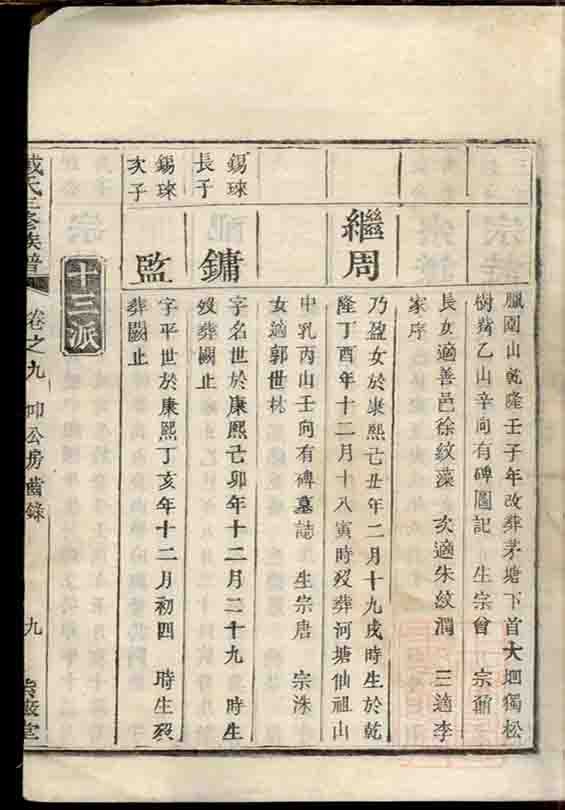 臘園山乾隆壬子年改葬茅塘下首大坵獨松
樹豬乙山辛向有碑圖記 生宗曾 宗
長女適善邑徐紋藻 次適朱紋潤 三適李
家序
繼周
乃盈女於康熙己丑年二月十九戌時生於乾
隆丁酉年十二月十八寅時歿葬河塘仙祖山
中乳丙山壬向有碑墓誌 生宗唐 宗洙
女適郭世林
錫琜
長子
鏞
字名世於康熙己卯年十二月二十九 時生
歿葬闕止
錫琜
次子
監
字平世於康熙丁亥年十二月初四 時生歿
葬闕止
十三派
戴氏三修族譜
卷之九 仰公房齒錄
九